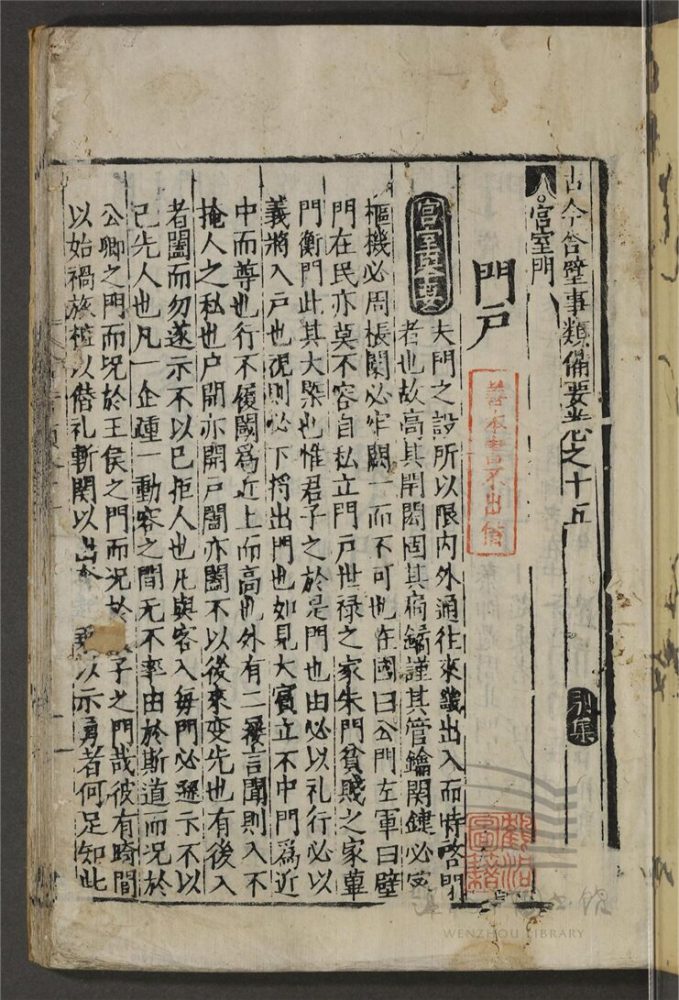 古今合璧事類備要卷之十五
別集
宮室門
門戶
善本書不出借
宮室事要
夫門之設所以限内外通往來謹出入而時啓閉
者也故高其閈閎固其扃鐍謹其管鑰関鍵必宻
樞機必周棖闑必牢闕一而不可也在國曰公門左軍曰壁
門在民亦莫不容自私立門戶世禄之家朱門貧賤之家蓽
門衡門此其大槩也惟君子之於是門也由必以礼行必以
義將入戶也視則必下将出門也如見大賓立不中門爲近
中而尊也行不履閾爲近上而高也外有二屨言聞則入不
掩人之私也户開亦開戸闔亦闔不以後來变先也有後入
者闔而勿遂示不以己拒人也凡與客入每門必遜示不以
己先人也凡一企踵一動容之間无不率由於斯道而况於
公卿之門而况於王侯之門而况於 子之門哉彼有踦閭
以始禍旅 以僭礼斬関以出 以示勇者何足知此
WENZHOU LIBRARY